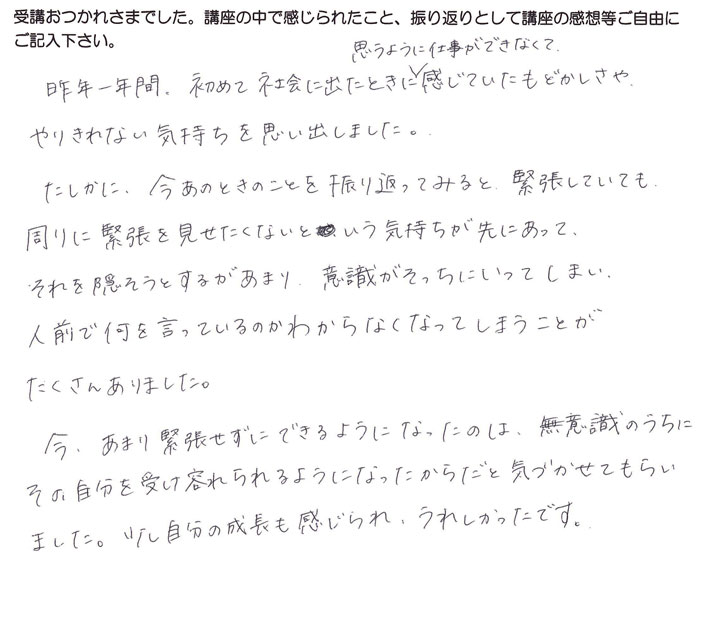 受講おつかれさまでした。講座の中で感じられたこと、振り返りとして講座の感想等ご自由に
ご記入下さい。
思うように仕事ができなくて、
昨年一年間、初めて社会に出たときに感じていたもどかしさや、
やりきれない気持ちを思い出しました。
たしかに、今あのときのことを振り返ってみると、緊張していても、
周りに緊張を見せたくないという気持ちが先にあって、
それを隠そうとするがあまり、意識がそっちにいってしまい、
人前で何を言っているのかわからなくなってしまうことが
たくさんありました。
今、あまり緊張せずにできるようになったのは、無意識のうちに
その自分を受け容れられるようになったからだと気づかせてもらい
ました。少し自分の成長も感じられ、うれしかったです。